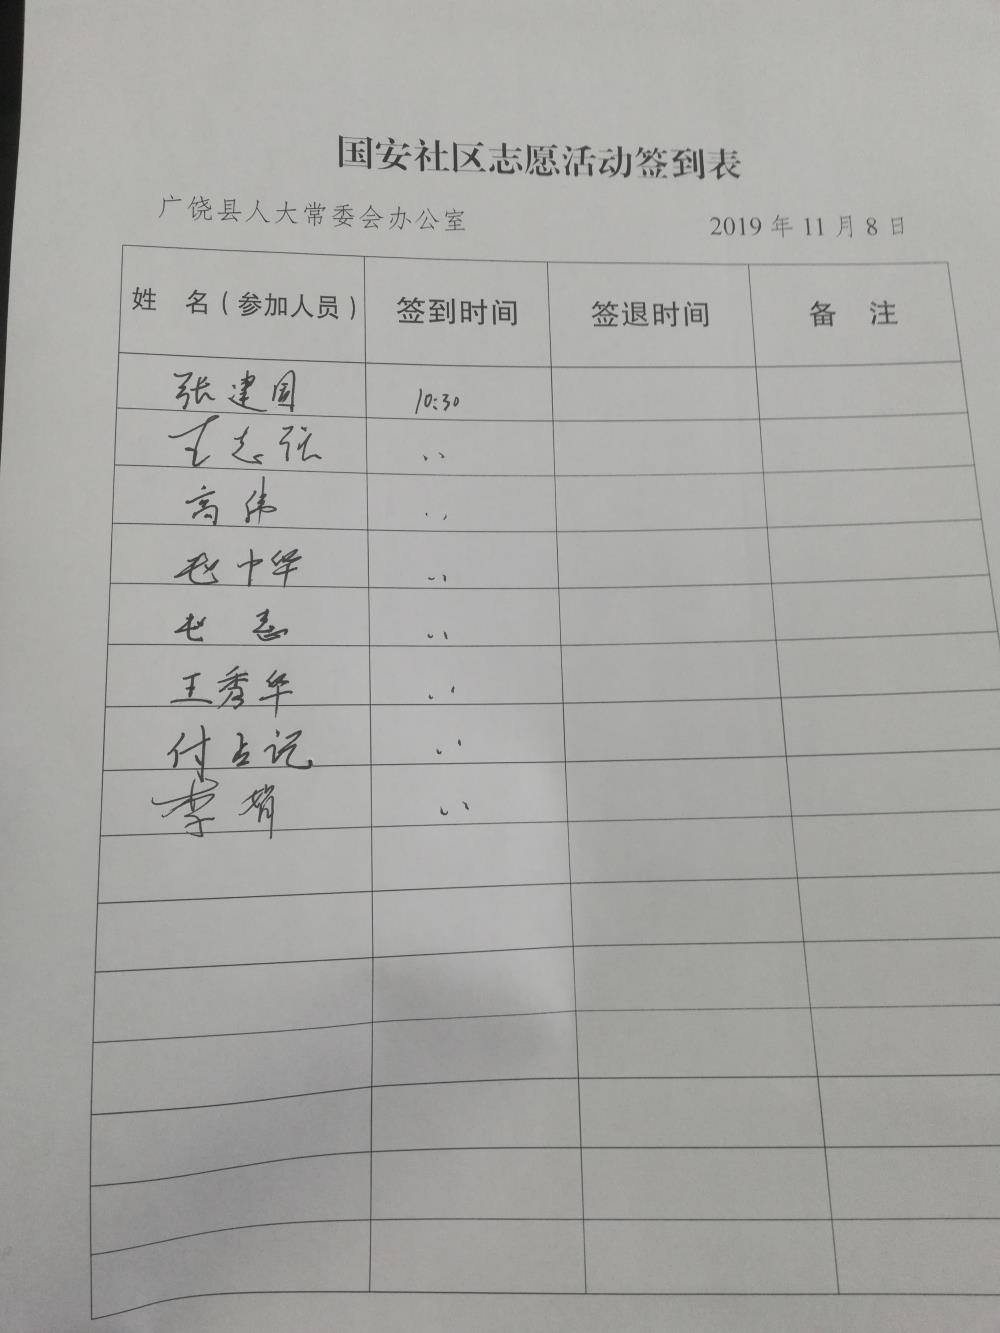 国安社区志愿活动签到表
广饶县人大常委会办公室 2019 年 11 月 8 日
姓 名（参加人员） 签到时间 签退时间 备 注
张建国 10:30
王志强 〃
高伟 〃
赵中华 〃
赵志 〃
王秀华 〃
付占记 〃
李娟 〃